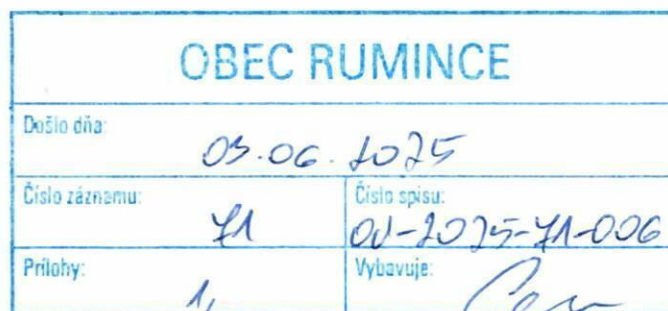 OBEC RUMINCE
Došlo dňa:
03.06.2025
Číslo záznamu:
71
Číslo spisu:
OU-2025-71-006
Prílohy:
Vybavuje: